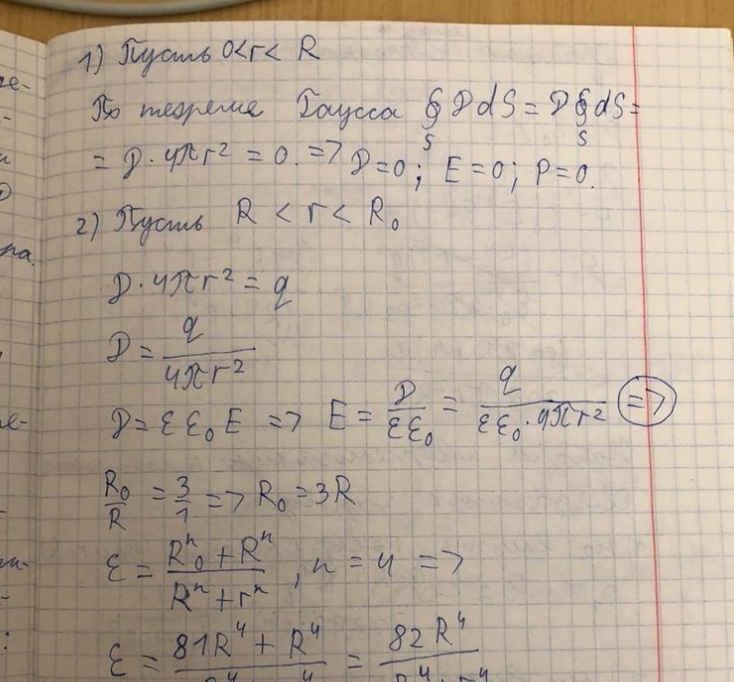 1) Пусть 0<r<R
По теореме Гаусса ∮_S D dS = D ∮_S dS =
= D · 4πr² = 0. => D=0; E=0; P=0.
2) Пусть R < r < R₀
D · 4πr² = q
D = q / 4πr²
D = εε₀E => E = D / εε₀ = q / εε₀ · 4πr² =>
R₀ / R = 3 / 1 => R₀ = 3R
ε = (R₀ⁿ + Rⁿ) / (Rⁿ + rⁿ), n = 4 =>
ε = (81R⁴ + R⁴) / = 82R⁴ /